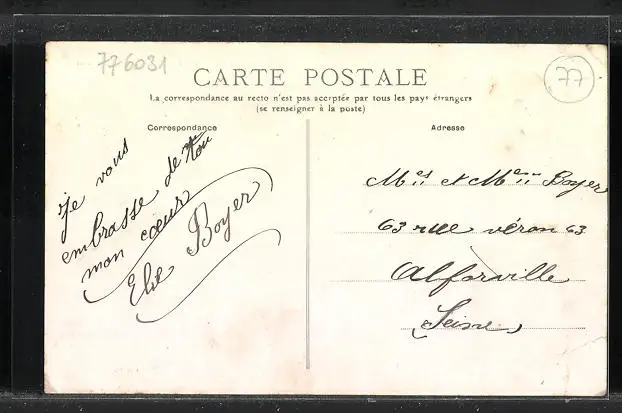 776031
77
CARTE POSTALE
La correspondance au recto n'est pas acceptée par tous les pays étrangers
(se renseigner à la poste)
Correspondance
Je vous
embrasse de tou
mon cœur
Elie Boyer
Adresse
Mr et Mme Boyer
63 rue véron 63
Alforville
(Seine)